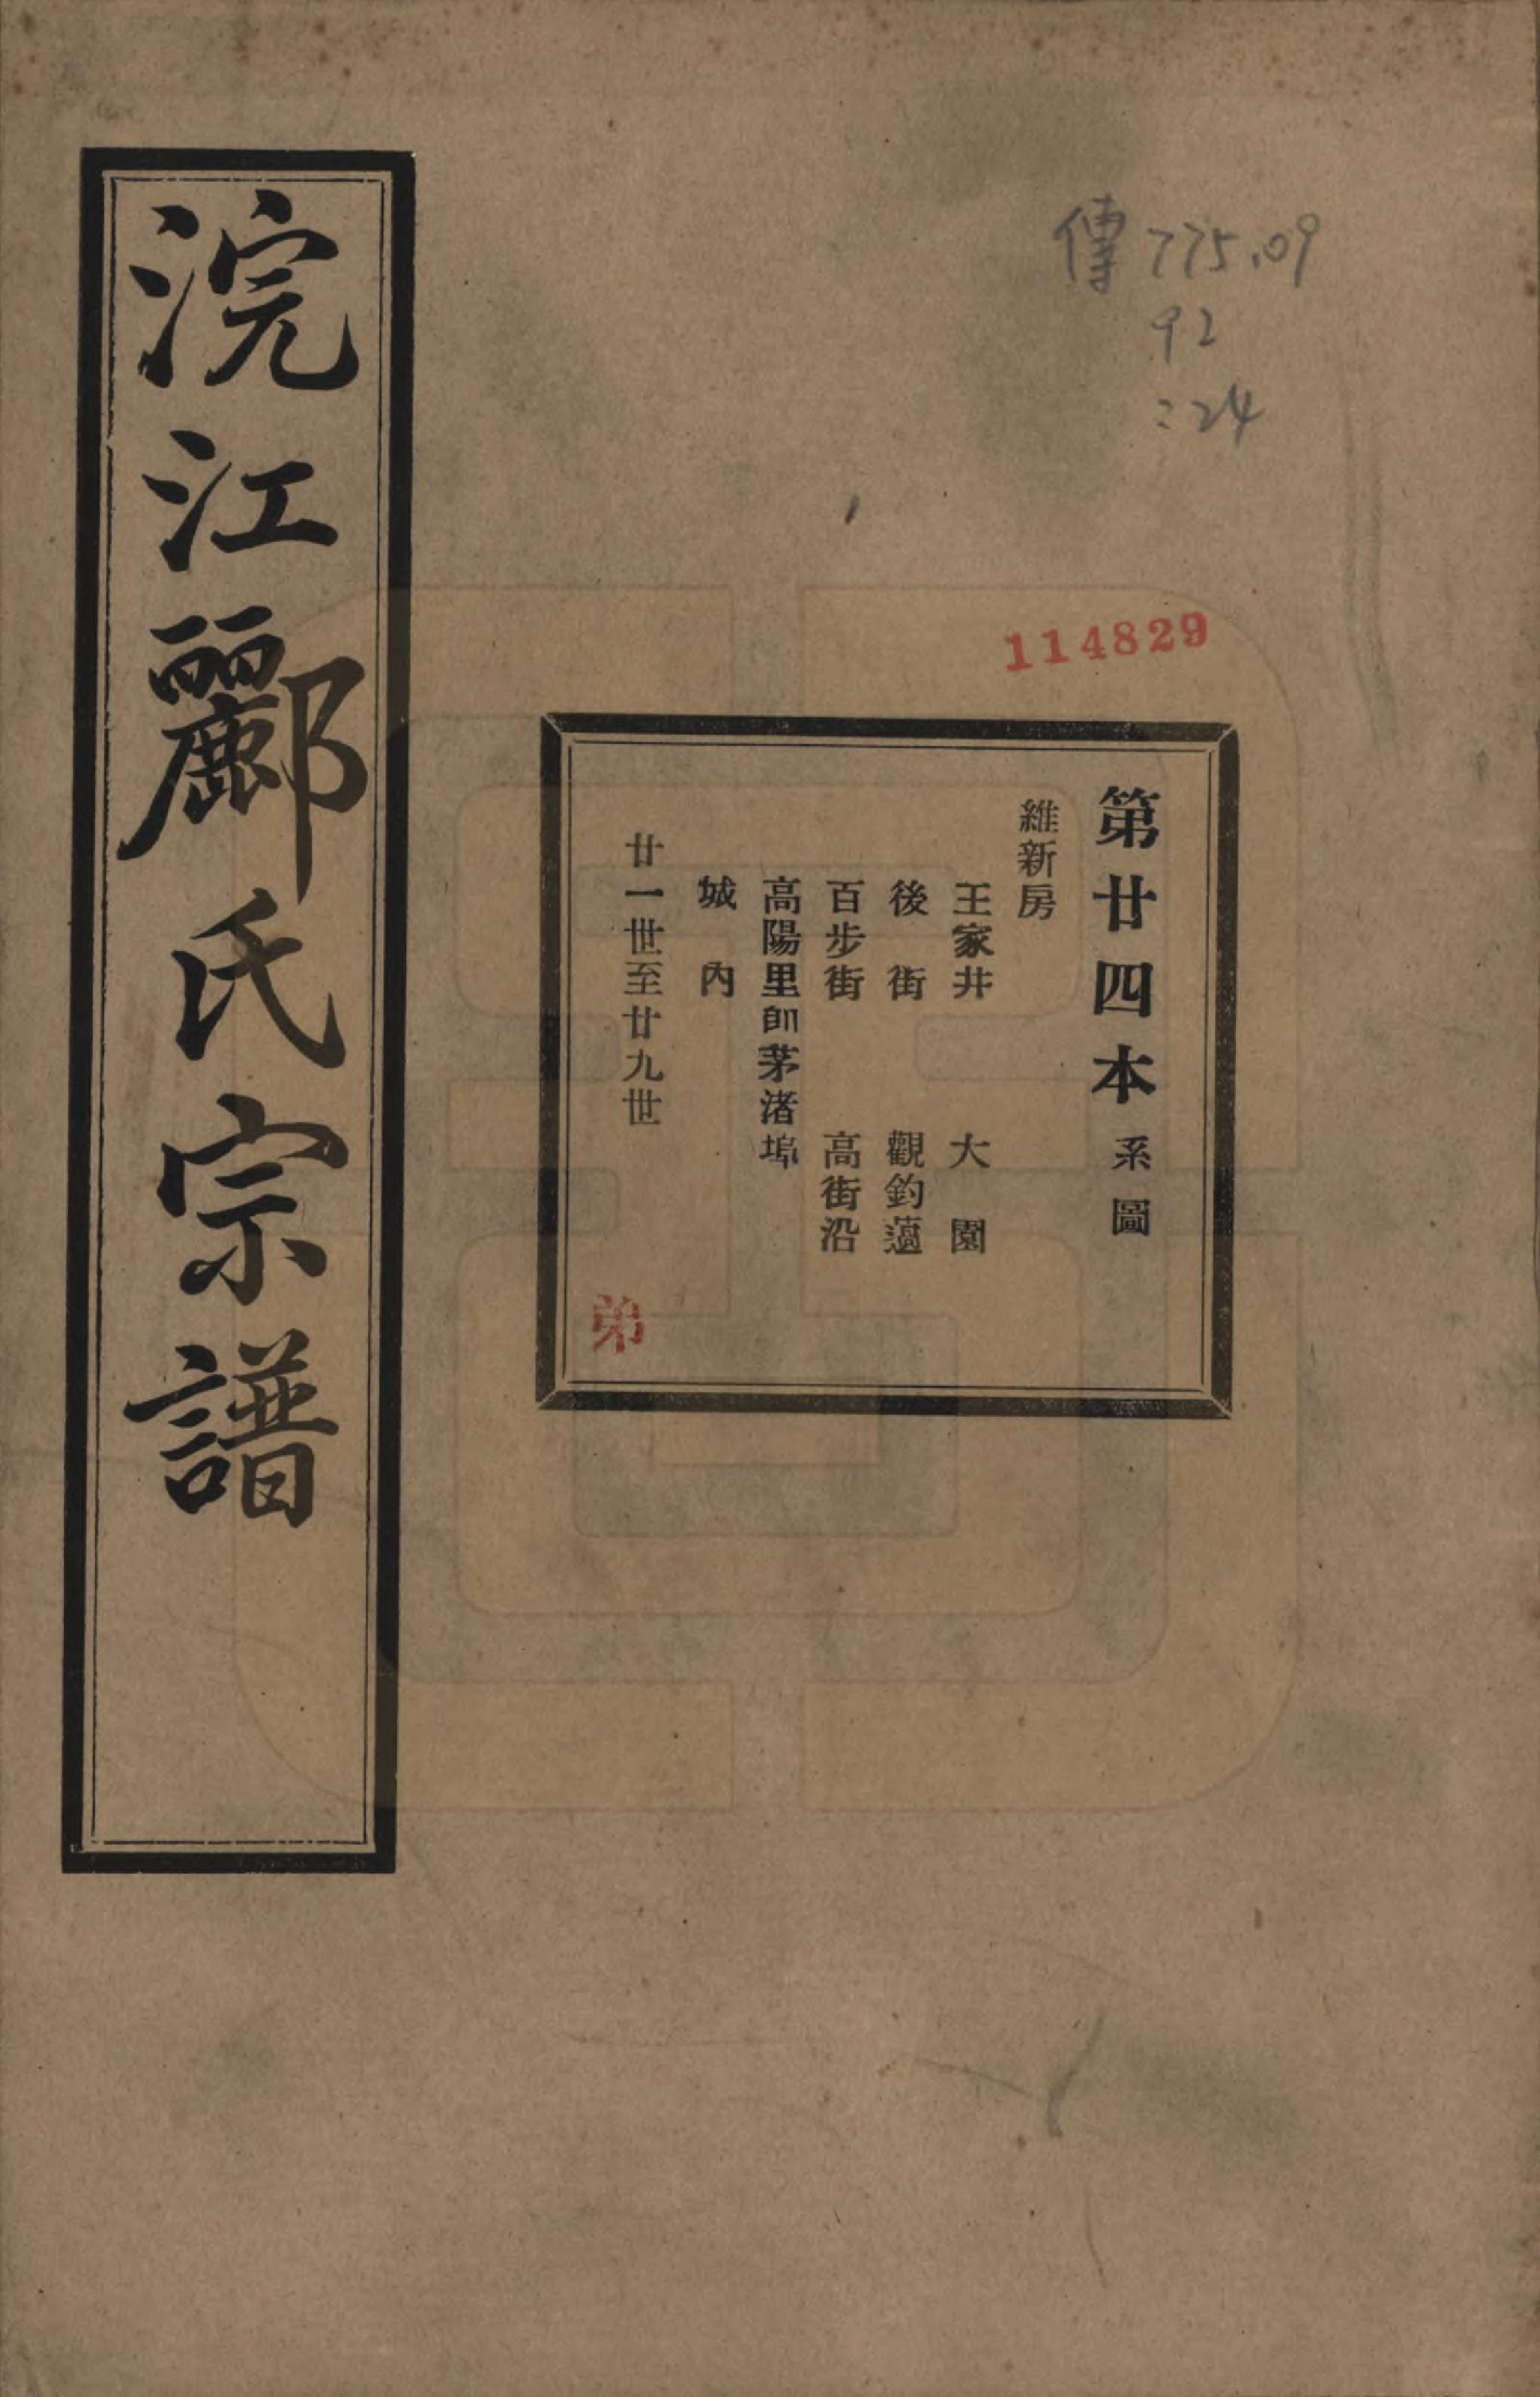 傳 775.09
92
:24
114829
第廿四本 系圖
維新房
王家井 大園
後街 觀釣薖
百步街 高街沿
高陽里卽茅渚埠
城內
廿一世至廿九世
弟
浣江酈氏宗譜